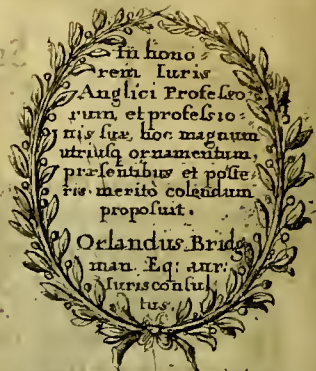 In hono=
rem Iuris
Anglici Professo
rum, et professio=
nis suæ, hoc magnum
utriusq ornamentum,
præsentibus et poste
ris merito colendum
proposuit.
Orlandus Bridg
man Eq: aur:
Iuris consul
tus